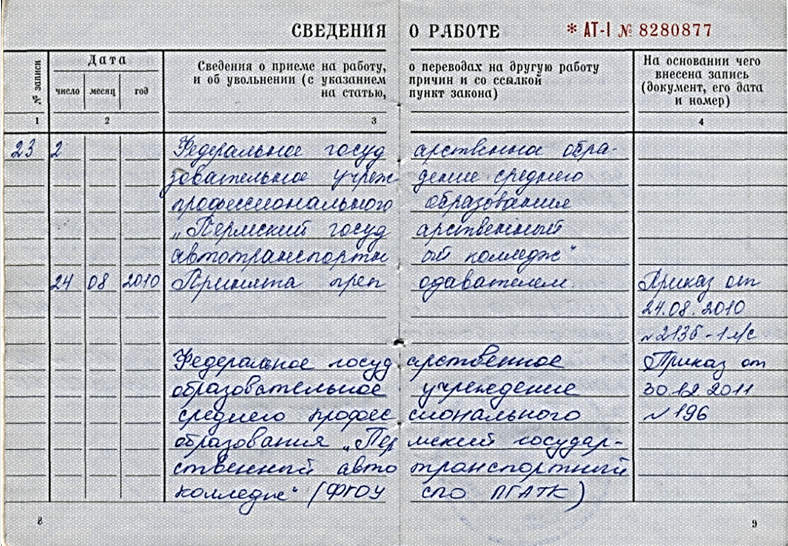 СВЕДЕНИЯ О РАБОТЕ * АТ-I № 8280877
№ записи
Дата
число месяц год
Сведения о приеме на работу, о переводах на другую работу
и об увольнении (с указанием причин и со ссылкой
на статью, пункт закона)
На основании чего
внесена запись
(документ, его дата
и номер)
1 2 3 4
23 2 Федеральное государственное обра-
зовательное учреждение среднего
профессионального образования
„Пермский государственный
автотранспортный колледж“
24 08 2010 Принята преподавателем Приказ от
24.08.2010
№ 213б-1 л/с
Федеральное государственное Приказ от
образовательное учреждение 30.12.2011
среднего профессионального № 196
образования „Пермский государ-
ственный автотранспортный
колледж“ (ФГОУ СПО ПГАТК)
8 9